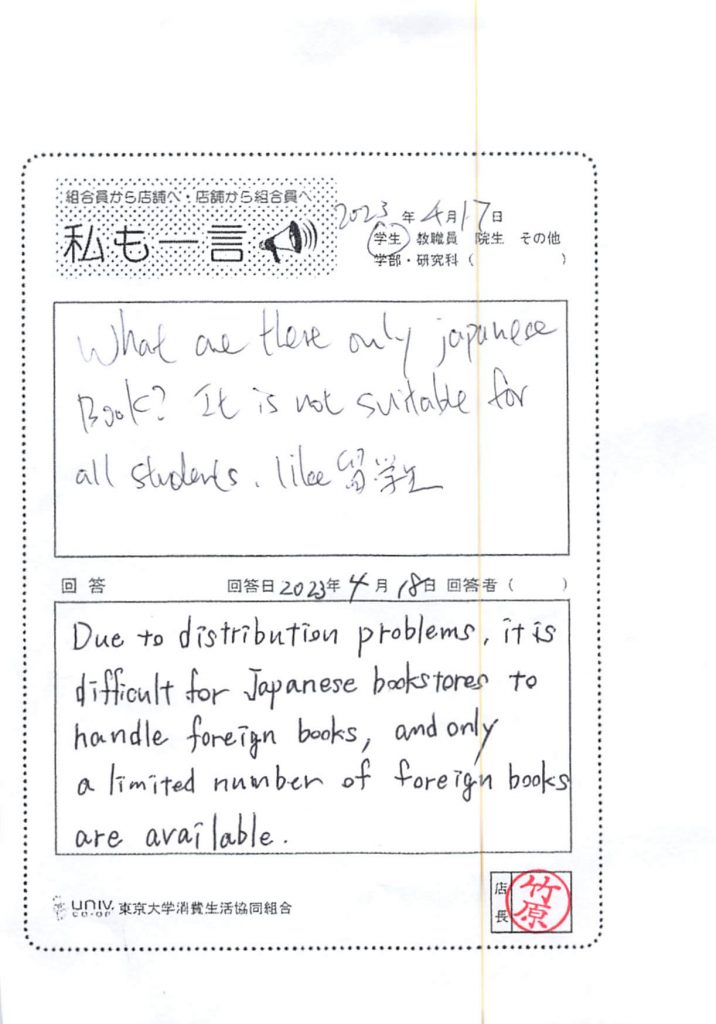 組合員から店舗へ・店舗から組合員へ
私も一言
2023年4月17日
学生 教職員 院生 その他
学部・研究科（ ）
What are there only japanese
Book? It is not suitable for
all students. like 留学生
回答 回答日2023年4月18日 回答者（ ）
Due to distribution problems, it is
difficult for Japanese bookstores to
handle foreign books, and only
a limited number of foreign books
are available.
UNIV. CO-OP 東京大学消費生活協同組合
店長 竹原